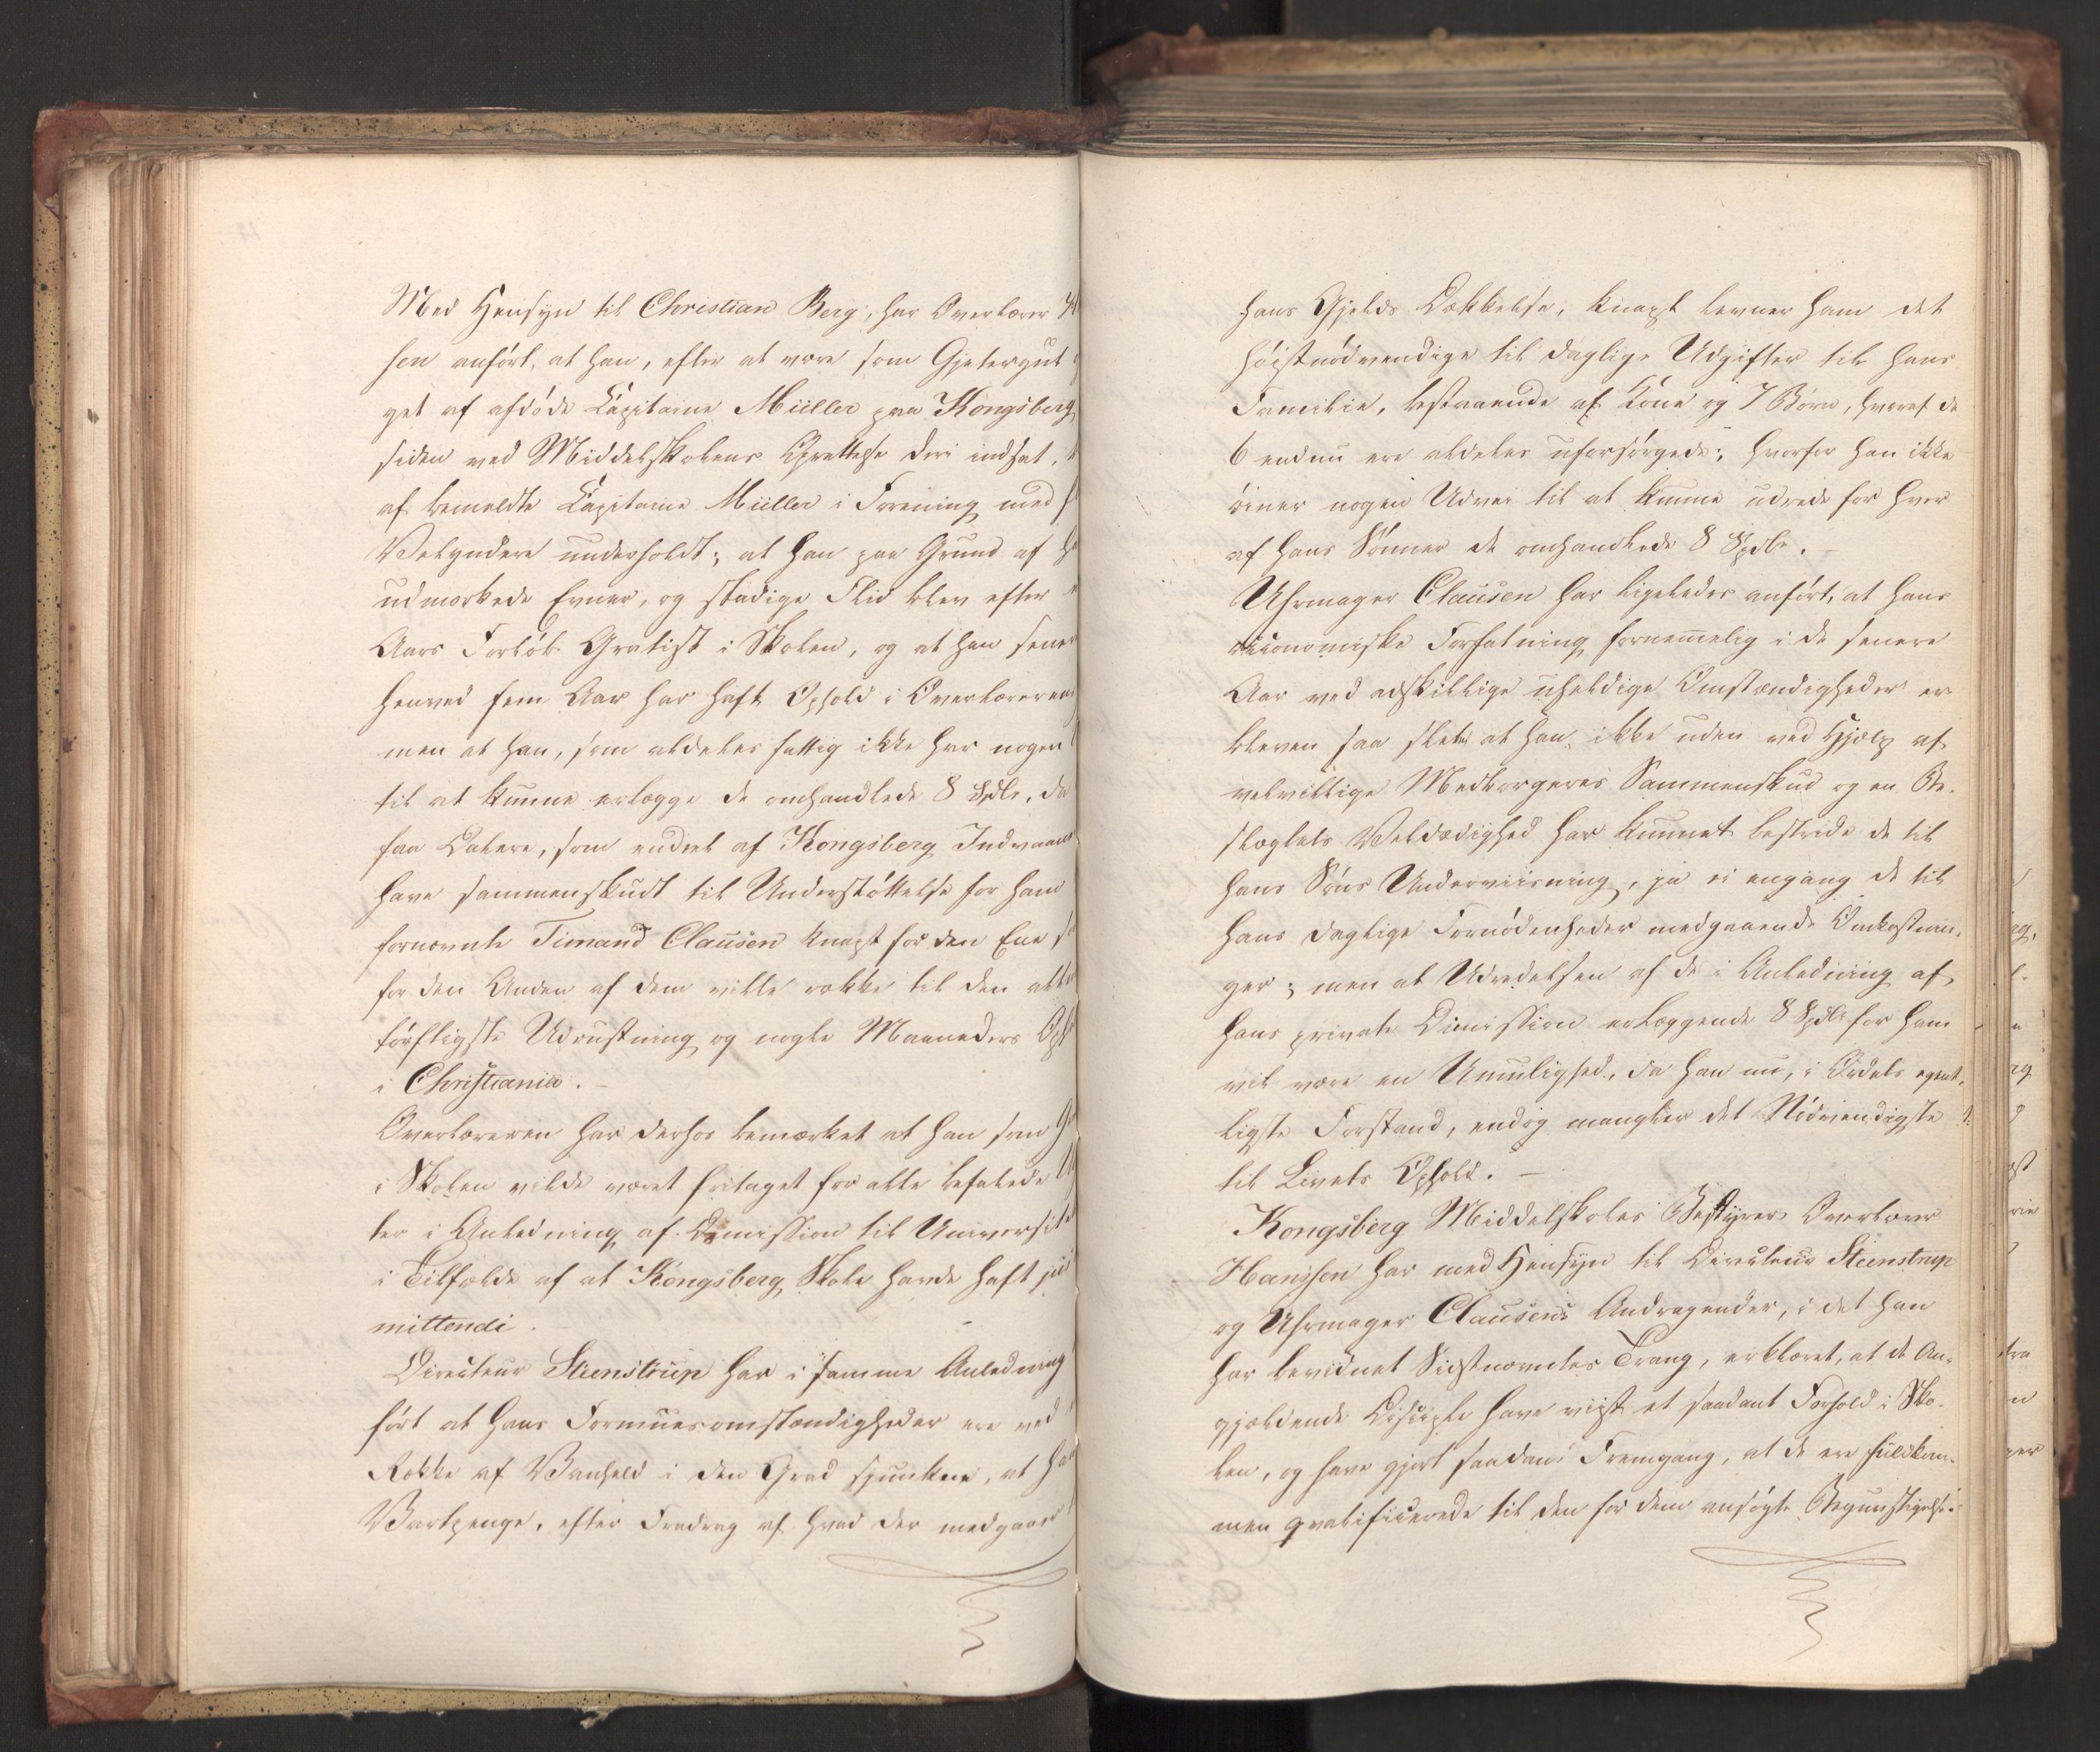 Med Hensyn til Christian Berg, har Overlærer
sen anført, at han, efter at være som Gjetergut
get af afdøde Capitaine Müller paa Kongsberg
siden ved Middelskolens Oprettelse deri indsat,
af bemeldte Capitaine Müller i Forening med
Velyndere underholdt; at han paa Grund af
udmærkede Evner, og stadige Flid blev efter
Aars Forløb Gratist i Skolen, og at han sener
henved fem Aar har haft Ophold i Overlæreren
men at han, som aldeles fattig ikke har nogen
til at kunne erlægge de omhandlede 8 Spdlr, da
faa Dalere, som endeel af Kongsberg Indvaan
have sammenskudt til Understøttelse for ham
fornævnte Timand Clausen knapt for den Ene
for den Anden af dem ville række til den aller
tørftigste Udrustning og nogle Maaneders
i Christiania. -
Overlæreren har derhos bemærket at han som
i Skolen vilde været fritaget for alle befalede
ter i Anledning af Dimission til Universitet
i Tilfælde af at Kongsberg Skole havde haft jus
mittendi. -
Directeur Steenstrup har i samme Anledning
ført at hans Formuesomstændigheder ere ved
Række af Vanheld i den Grad sjunkne, at han
Vartpenge, efter Fradrag af hvad der medgaaer
hans Gjelds Dækkelse, knapt levner ham det
høistnødvendige til daglige Udgifter til hans
Familie, bestaaende af Kone og 7 Børn, hvoraf de
6 endnu ere aldeles uforsørgede; hvorfor han ikke
øiner nogen Udvei til at kunne udrede for hver
af hans Sønner de omhandlede 8 Spdlr. -
Uhrmager Clausen har ligeledes anført, at hans
oeconomiske Forfatning fornemmelig i de senere
Aar ved adskillige uheldige Omstændigheder er
bleven saa slet at han ikke uden ved Hjælp af
velvillige Medborgeres Sammenskud og en Be-
slægtets Veldædighed har kunnet bestride de til
hans Søns Underviisning, ja ei engang de til
hans daglige Fornødenheder medgaaende Omkostnin-
ger; men at Udredelsen af de i Anledning af
hans private Dimission erlæggende 8 Spdlr for ham
vil være en Umulighed, da han nu, i Ordets egent-
ligste Forstand, endog mangler det Nødvendigste
til Livets Ophold. -
Kongsberg Middelskoles Bestyrer Overlærer
Hanssen har med Hensyn til Directeur Steenstrup
og Uhrmager Clausens Andragender, i det han
har bevidnet Sidstnævntes Trang, erklæret, at de An-
gjældende Disciple have viist et saadant Forhold i Sko-
len, og have gjort saadan Fremgang, at de ere fuldkom-
men qvalificerede til den for dem ansøgte Begunstigelse.